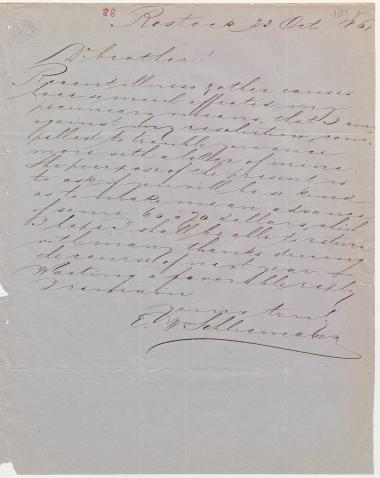 88
Rostock 23 Oct 1861
Dr brother!
Recent illness & other causes
have so much affected my
pecuniary means, that I am
against my resolution com-
pelled to trouble you once
more with a letter of mine.
The purpose of the present is
to ask if you will be so kind
as to make me an advance
of some 60 a 70 dollars, which
I hope I shall be able to return
with many thanks during
the course of next year.
Waiting a favorable reply
I remain
Yours truly
E. Wm Schliemann